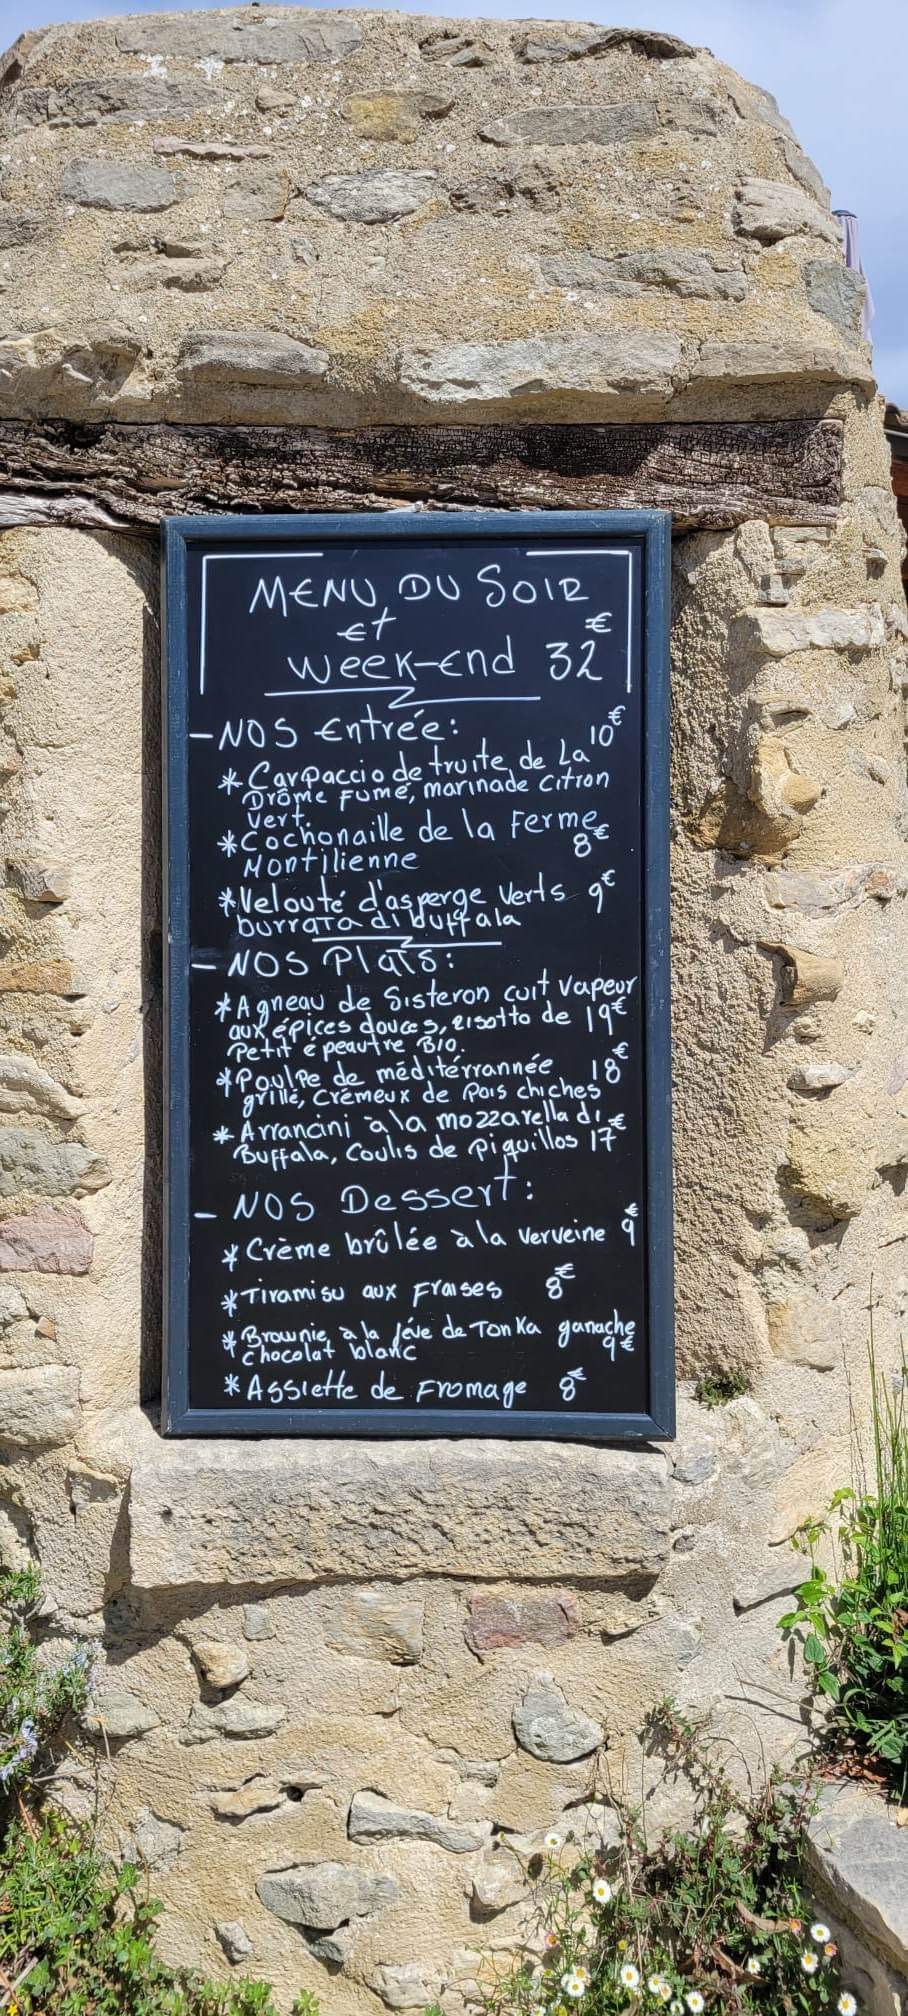 MENU DU SOIR
et
week-end 32€
- NOS Entrée:
* Carpaccio de truite de La 10€
Drôme fumé, marinade citron
vert.
* Cochonaille de la Ferme
Montilienne 8€
* Velouté d'asperge verts 9€
burrata di buffala
- NOS Plats:
* Agneau de Sisteron cuit vapeur
aux épices douces, risotto de 19€
Petit épeautre BIO.
* Poulpe de méditérrannée 18€
grillé, crémeux de Pois chiches
* Arrancini à la mozzarella di
Buffala, Coulis de Piquillos 17€
- NOS Dessert:
* Crème brûlée à la verveine 9€
* Tiramisu aux Fraises 8€
* Brownie à la féve de Tonka ganache
chocolat blanc 9€
* Assiette de Fromage 8€